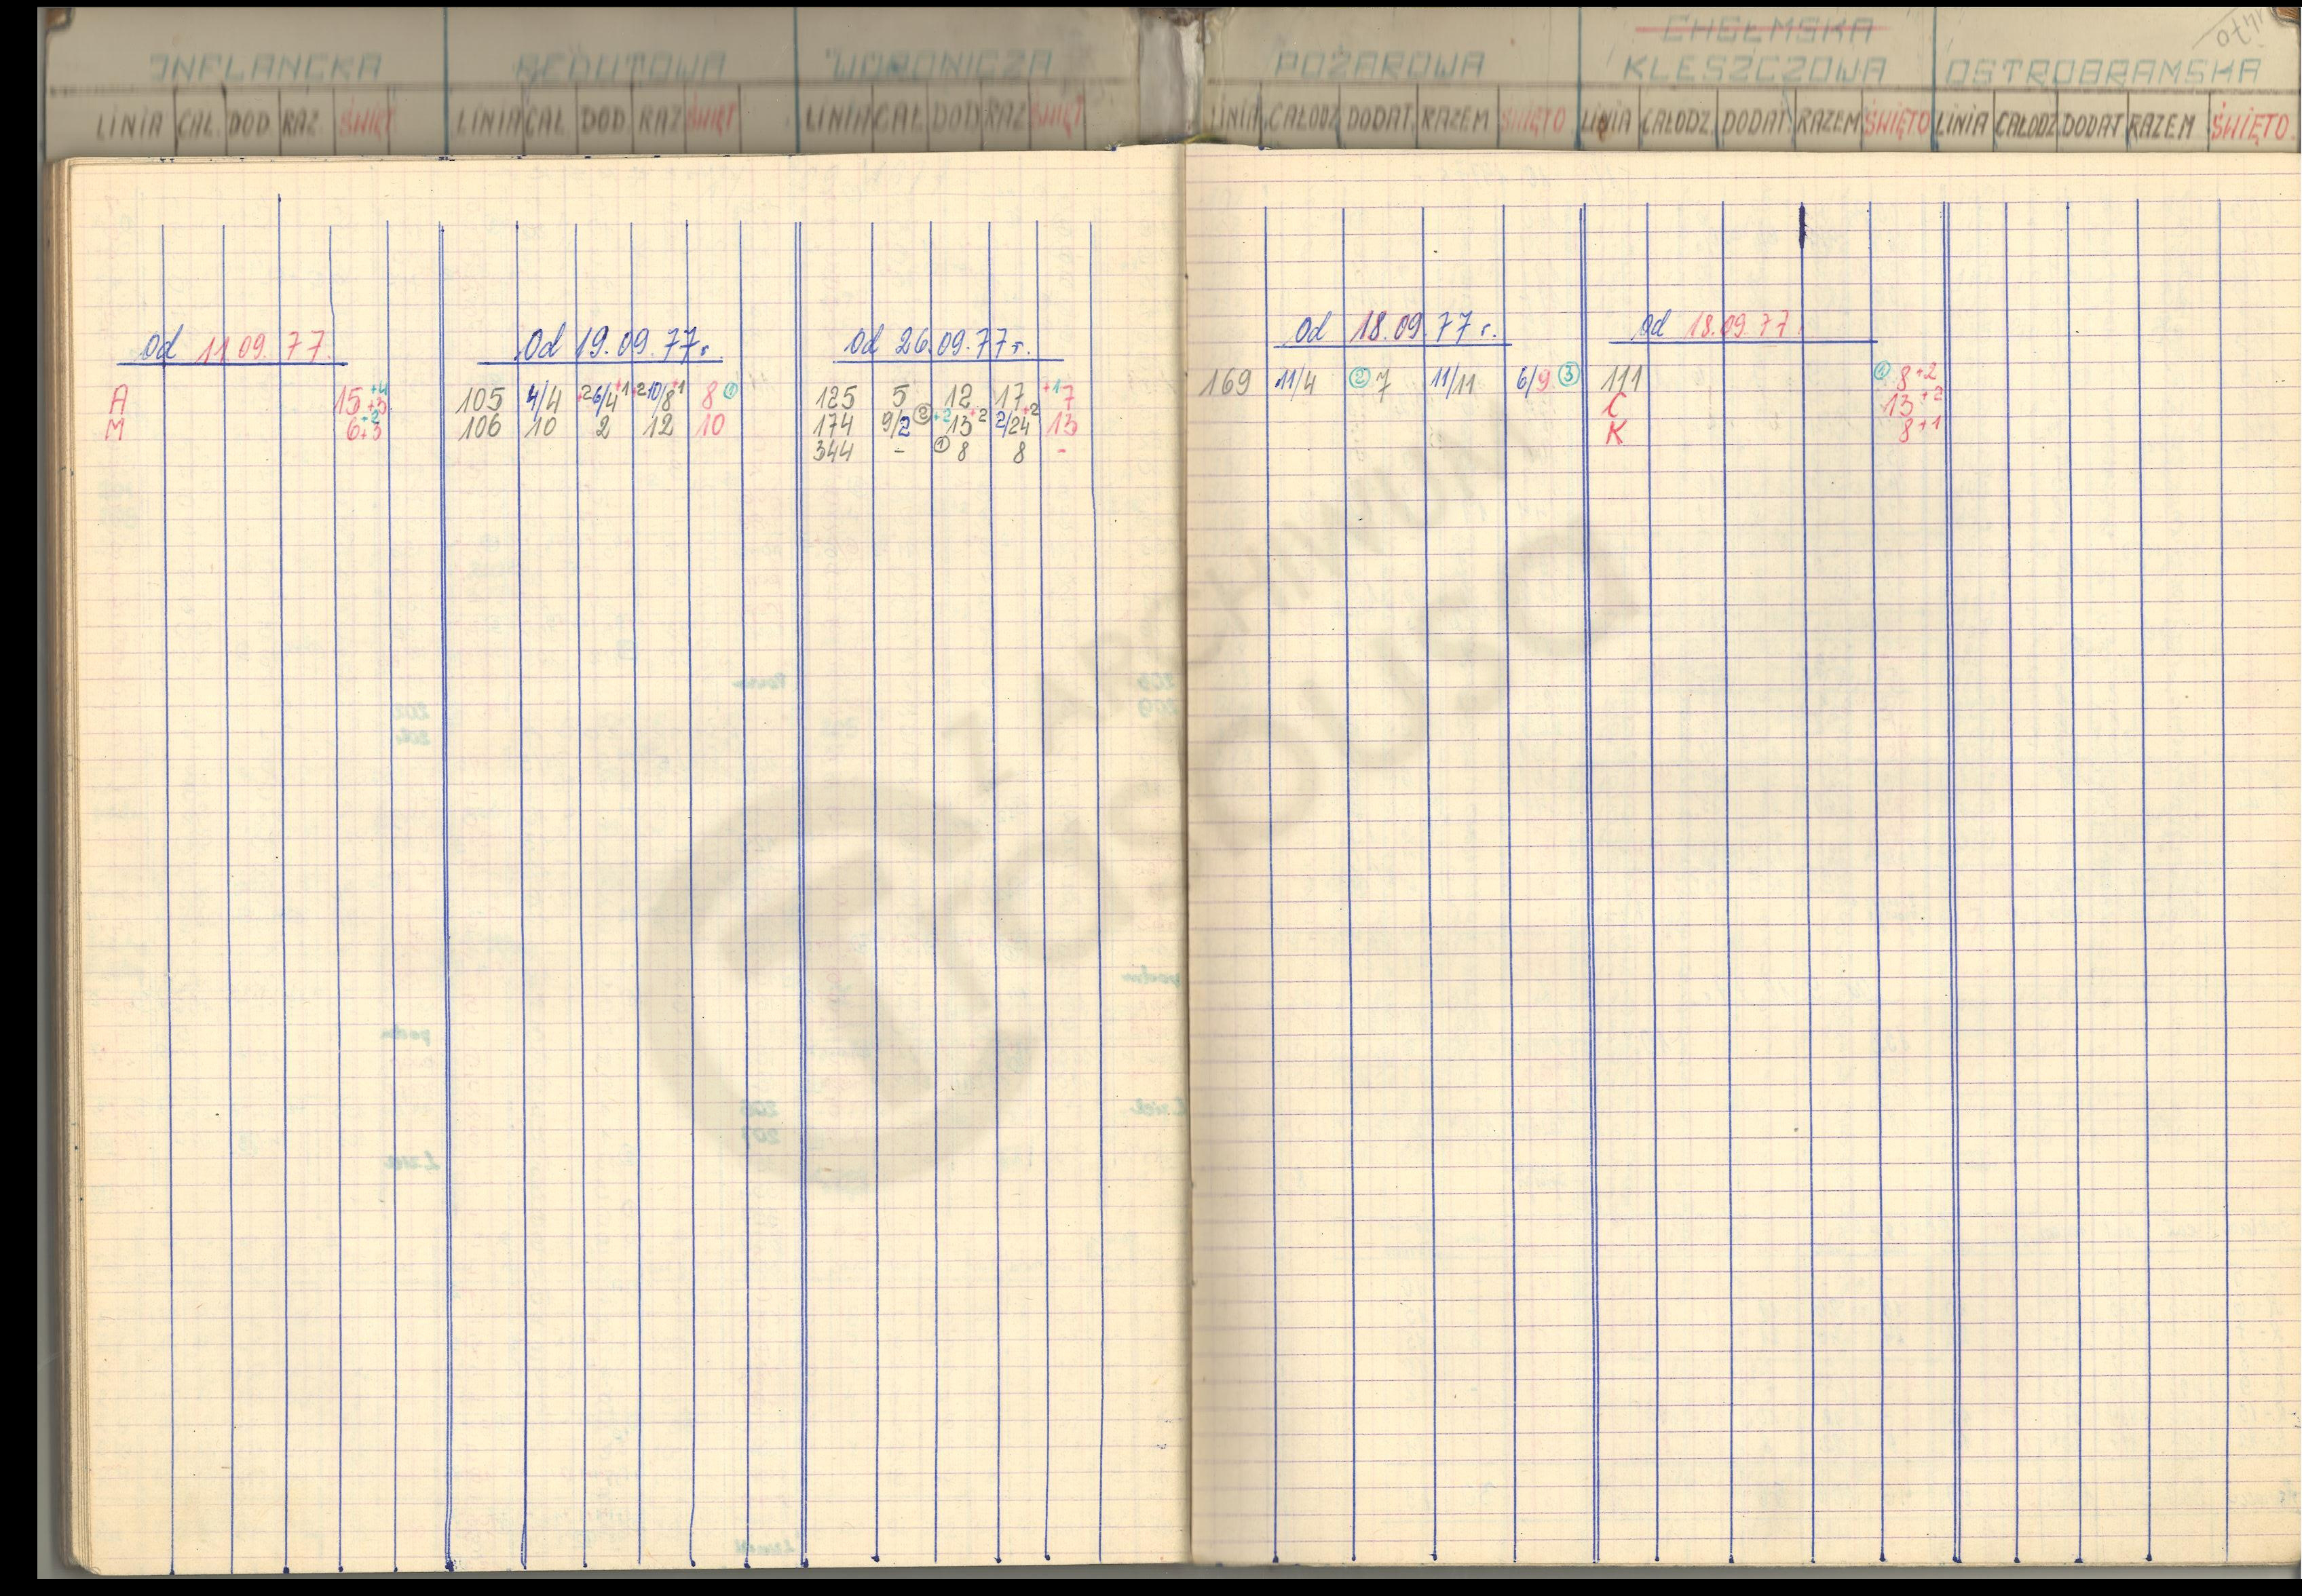 INFLANCKA REDUTOWA WORONICZA POŻAROWA CHEŁMSKA KLESZCZOWA OSTROBRAMSKA
LINIA CAŁ. DOD RAZ ŚWIĘT LINIA CAŁ DOD RAZ ŚWIĘT LINIA CAŁ DOD RAZ ŚWIĘT LINIA CAŁODZ DODAT. RAZEM ŚWIĘTO LINIA CAŁODZ. DODAT. RAZEM ŚWIĘTO LINIA CAŁODZ. DODAT RAZEM ŚWIĘTO
Od 11 09. 77.
A 15+3 +4
M 6+3 +2
Od 19.09.77r.
105 4/4 +2 6/4 +1 +2 10/8 +1 8 ①
106 10 2 12 10
Od 26.09.77r.
125 5 12 17 +1 7
174 9/2 ② +2 13 +2 2/24 +2 13
344 - ① 8 8 -
Od 18.09.77r.
169 11/4 ② 7 11/11 6/9 ③
Od 18.09.77.
111 ① 8+2
C 13+2
K 8+1
Z ARCHIWUM
TRASBUSA